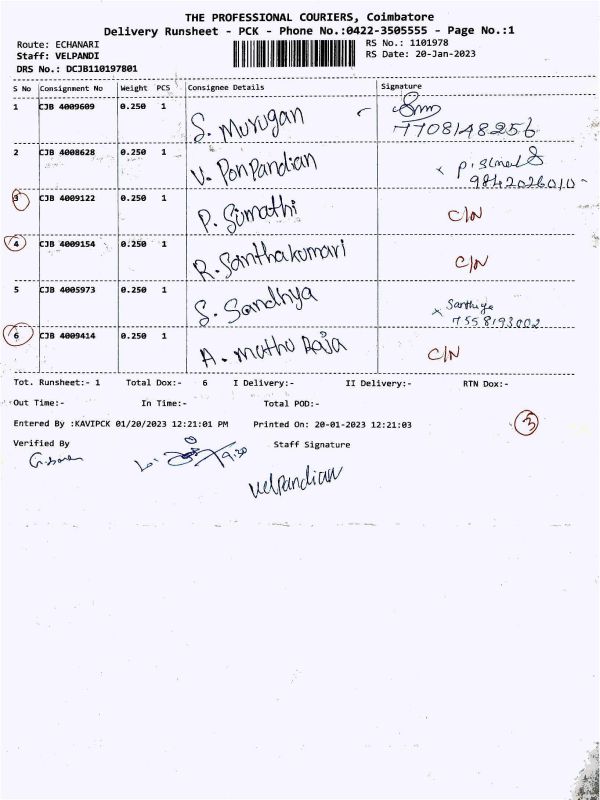 THE PROFESSIONAL COURIERS, Coimbatore
Delivery Runsheet - PCK - Phone No.:0422-3505555 - Page No.:1
Route: ECHANARI RS No.: 1101978
Staff: VELPANDI RS Date: 20-Jan-2023
DRS No.: DCJB110197801
S No Consignment No Weight PCS Consignee Details Signature
1 CJB 4009609 0.250 1 S. Murugan
7708148256
2 CJB 4008628 0.250 1 V. Ponpandian
9842026010
3 CJB 4009122 0.250 1 P. Sumathi C/N
4 CJB 4009154 0.250 1 R. Santhakumari C/N
5 CJB 4005973 0.250 1 S. Sandhya
7558193002
6 CJB 4009414 0.250 1 A. Muthu Raja C/N
Tot. Runsheet:- 1 Total Dox:- 6 I Delivery:- II Delivery:- RTN Dox:-
Out Time:- In Time:- Total POD:-
Entered By :KAVIPCK 01/20/2023 12:21:01 PM Printed On: 20-01-2023 12:21:03 3
Verified By Staff Signature
9.30
Velpandian